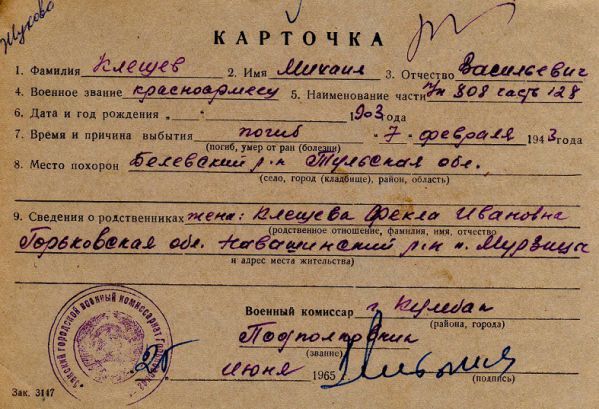 Жукова
КАРТОЧКА
1. Фамилия Клещев 2. Имя Михаил 3. Отчество Васильевич
4. Военное звание красноармеец 5. Наименование части п/п 808 часть 128
6. Дата и год рождения „ " 1903 года
7. Время и причина выбытия погиб „ 7 " февраля 1943 года
(погиб, умер от ран (болезни)
8. Место похорон Белевский р-н Тульская обл.
(село, город (кладбище), район, область)
9. Сведения о родственниках жена: Клещева Фекла Ивановна
(родственное отношение, фамилия, имя, отчество
Горьковская обл. Навашинский р-н п. Мурзица
и адрес места жительства)
Военный комиссар г. Кулебак
(района, города)
Подполковник
(звание)
„ 25 " июня 1965
(подпись)
городской военный комиссариат
Зак. 3147